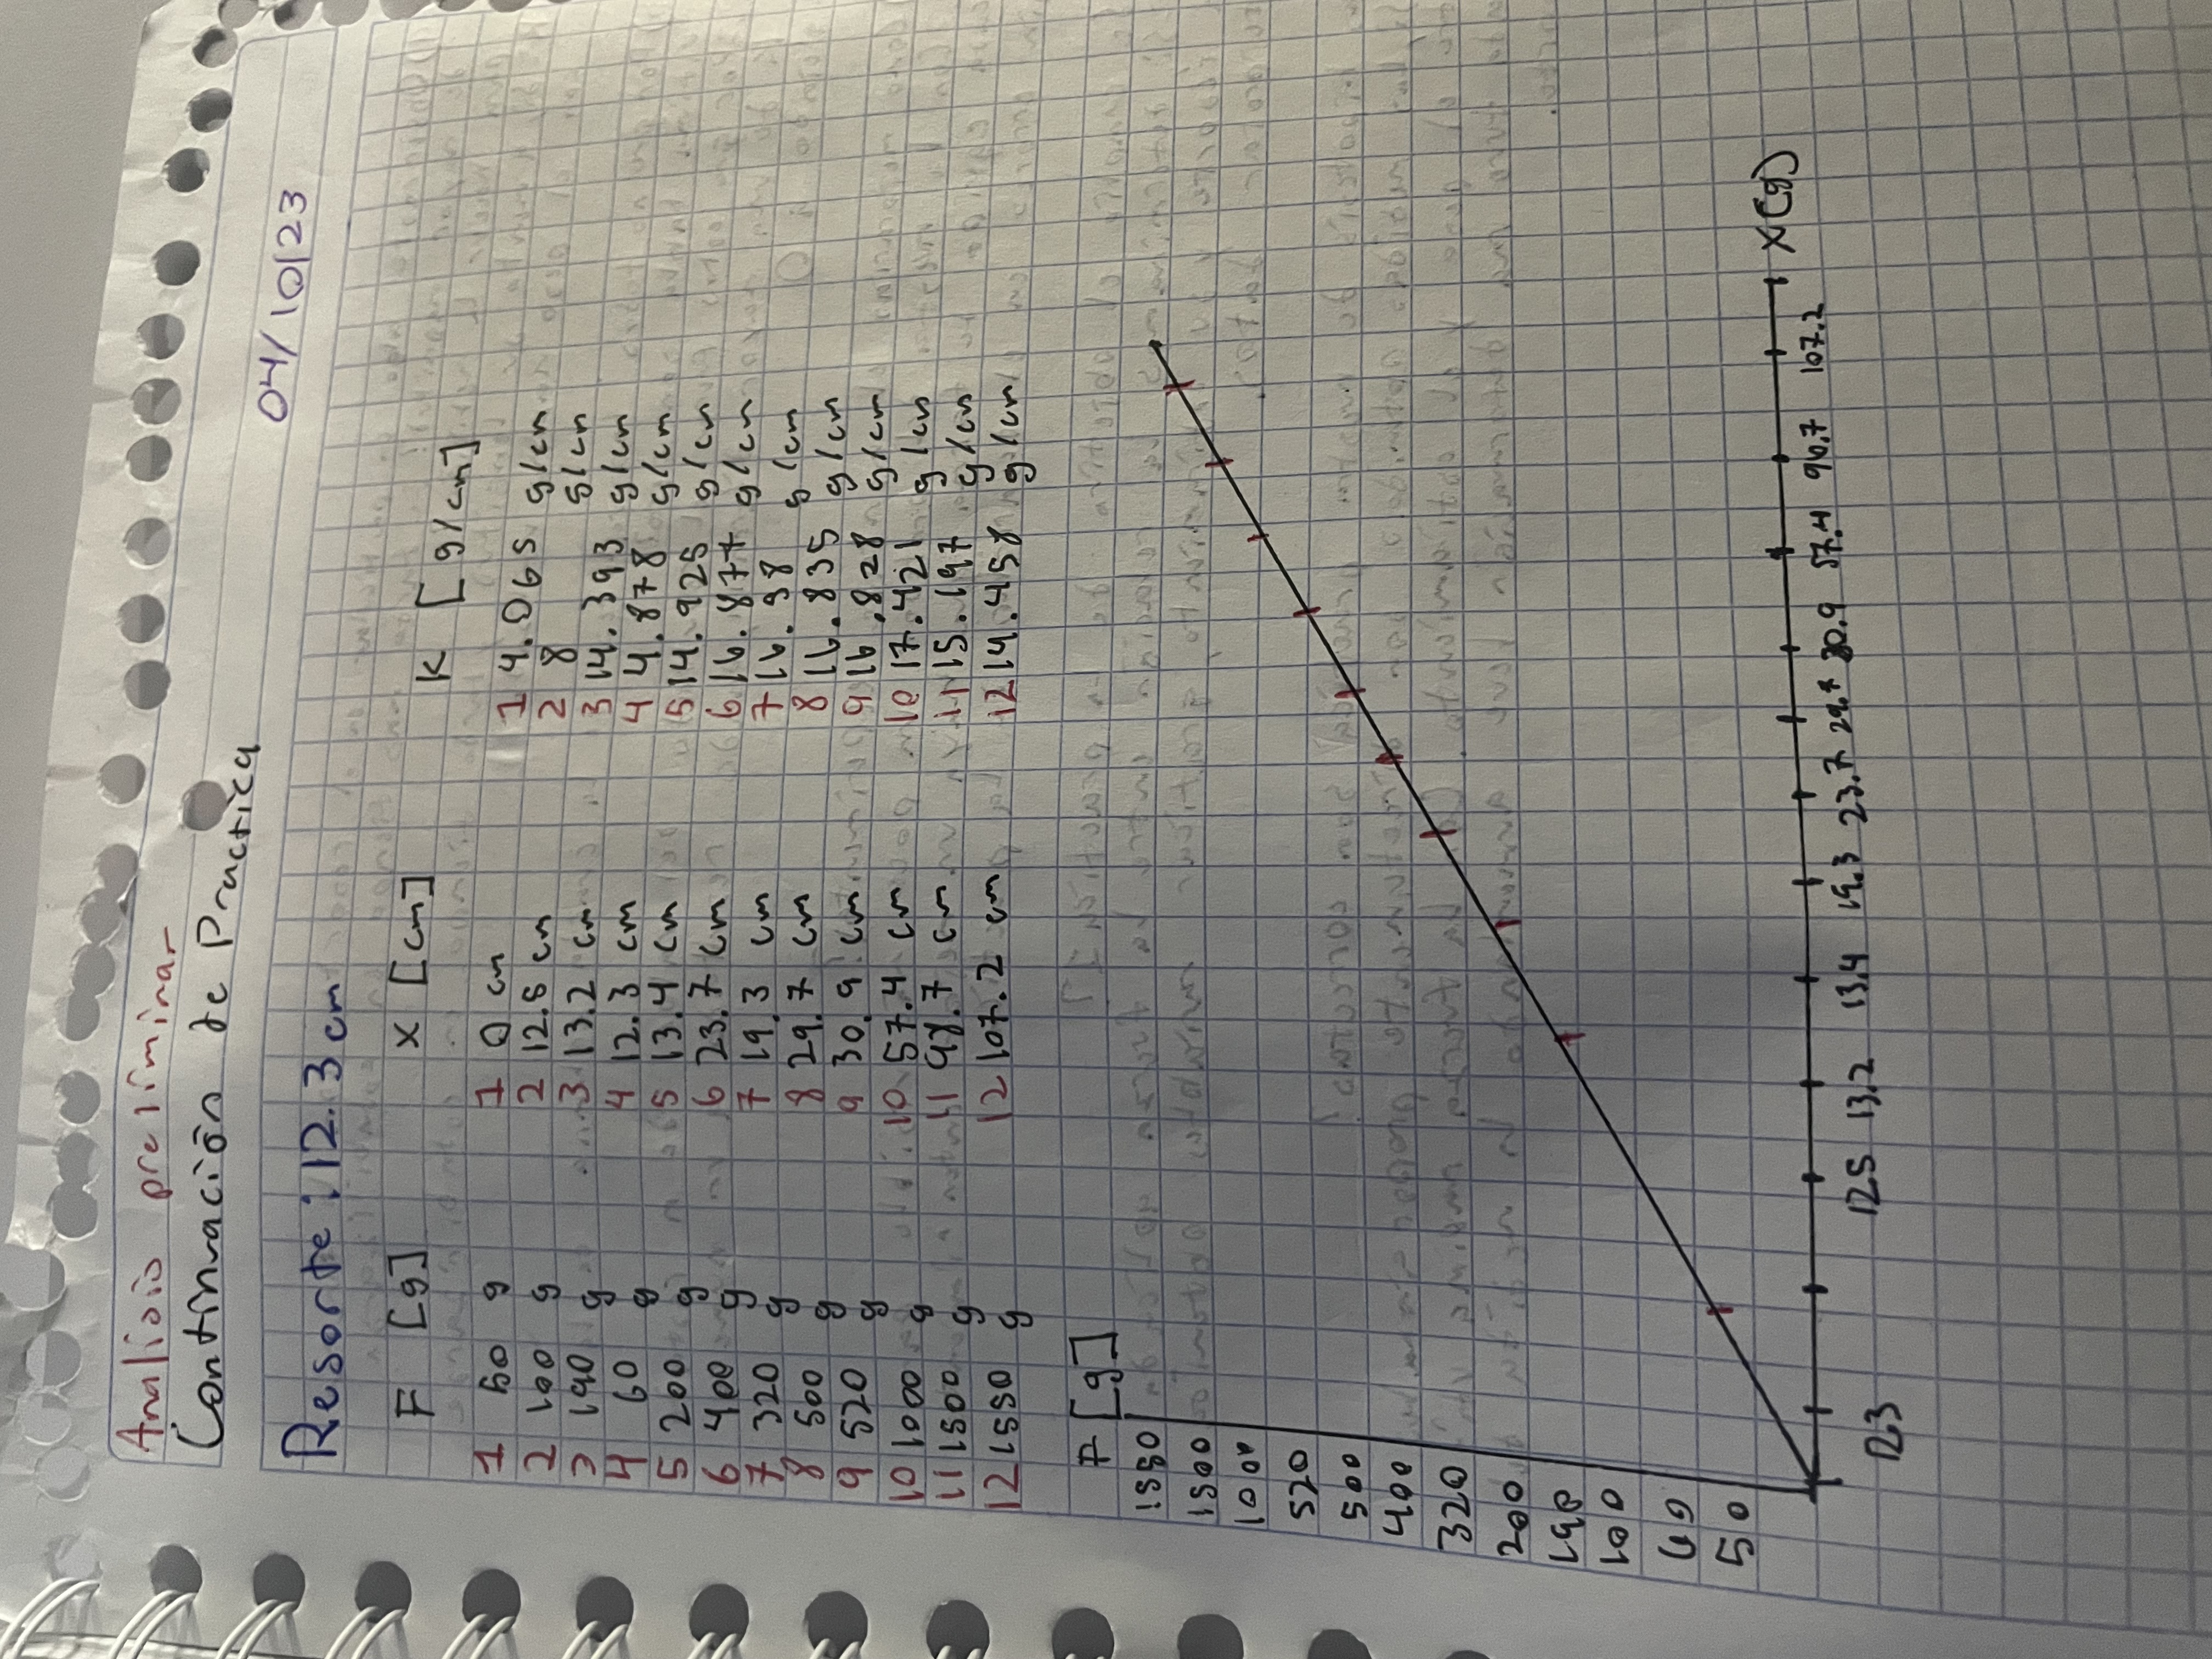 Analisis preliminar
Continuación de Practica
04/10/23
Resorte: 12.3 cm
F [g] X [cm] K [g/cm]
1 50 g 1 0 cm 1 4.065 g/cm
2 100 g 2 12.5 cm 2 8 g/cm
3 190 g 3 13.2 cm 3 14.393 g/cm
4 60 g 4 12.3 cm 4 4.878 g/cm
5 200 g 5 13.4 cm 5 14.925 g/cm
6 400 g 6 23.7 cm 6 16.877 g/cm
7 320 g 7 19.3 cm 7 16.98 g/cm
8 500 g 8 29.7 cm 8 16.835 g/cm
9 520 g 9 30.9 cm 9 16.828 g/cm
10 1000 g 10 57.4 cm 10 17.421 g/cm
11 1500 g 11 98.7 cm 11 15.197 g/cm
12 1550 g 12 107.2 cm 12 14.458 g/cm
F [g]
1550
1500
1000
520
500
400
320
200
190
100
60
50
X(g)
12.3 12.5 13.2 13.4 19.3 23.7 29.7 30.9 57.4 96.7 107.2